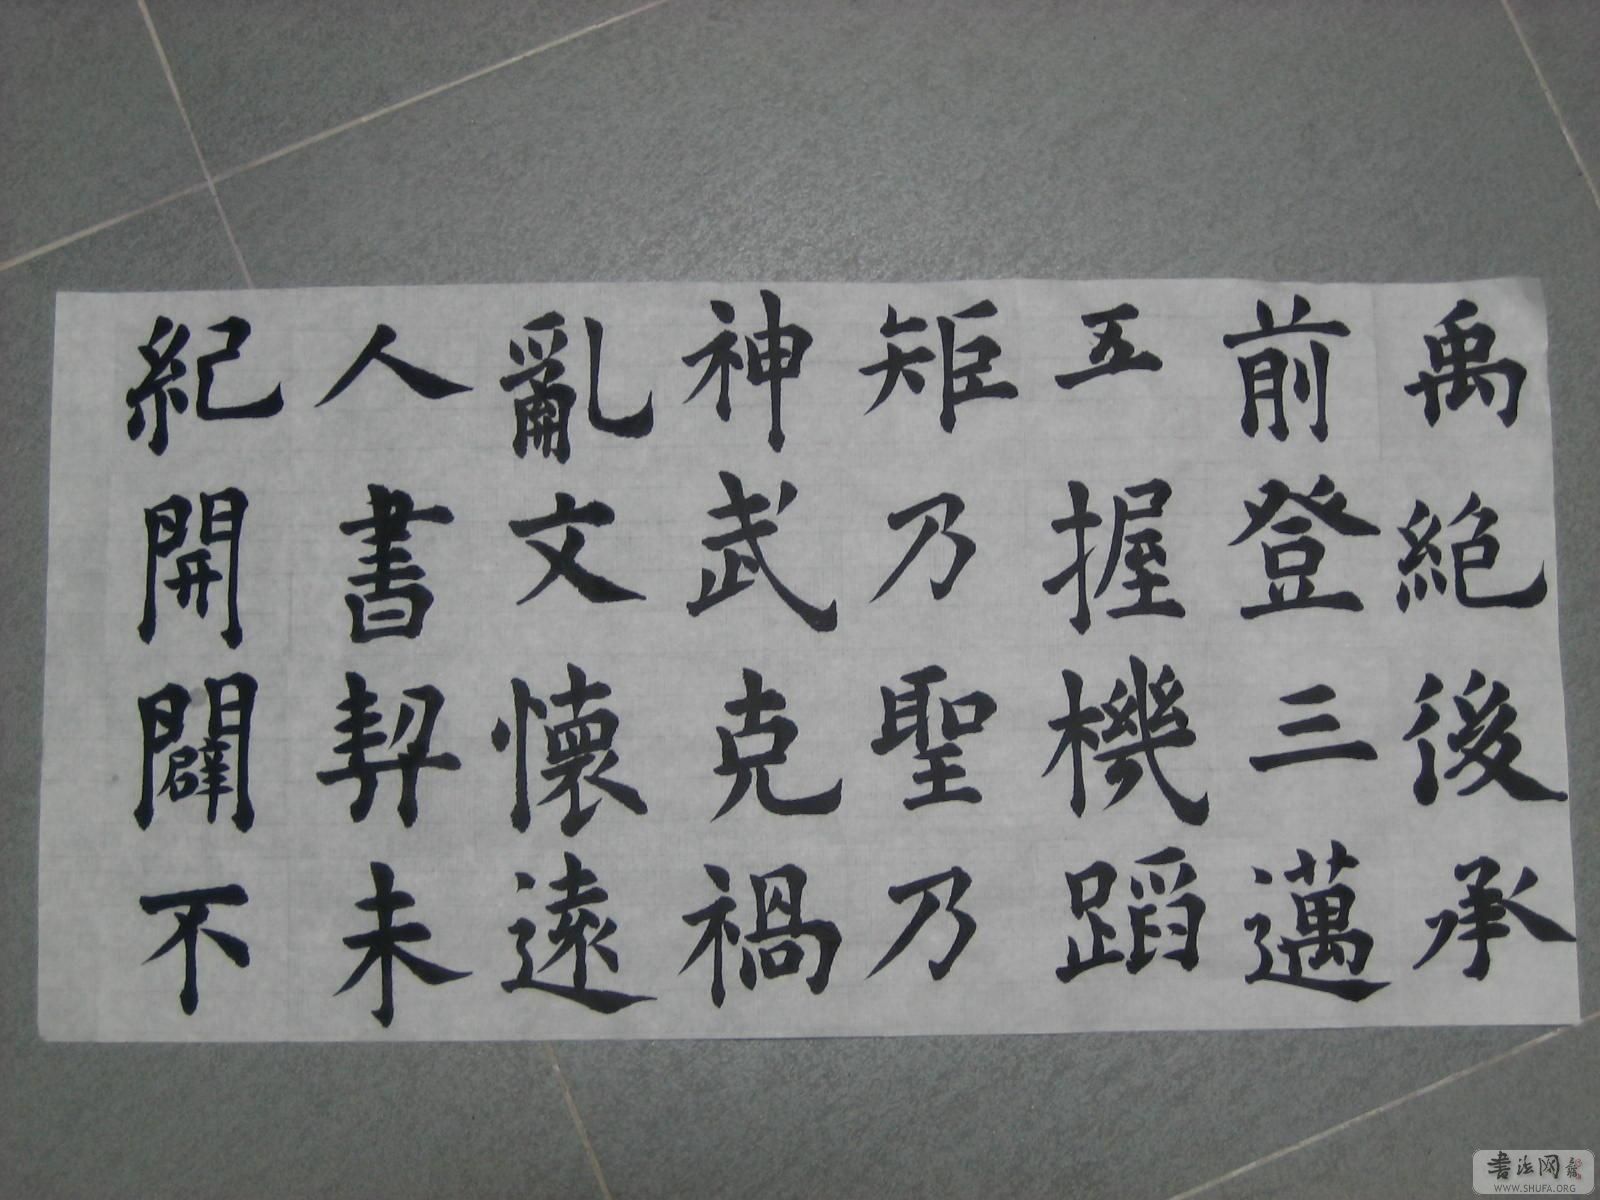 禹絶後承
前登三邁
五握機蹈
矩乃聖乃
神武克禍
亂文懷遠
人書契未
紀開闢不
书法网
WWW.SHUFA.ORG